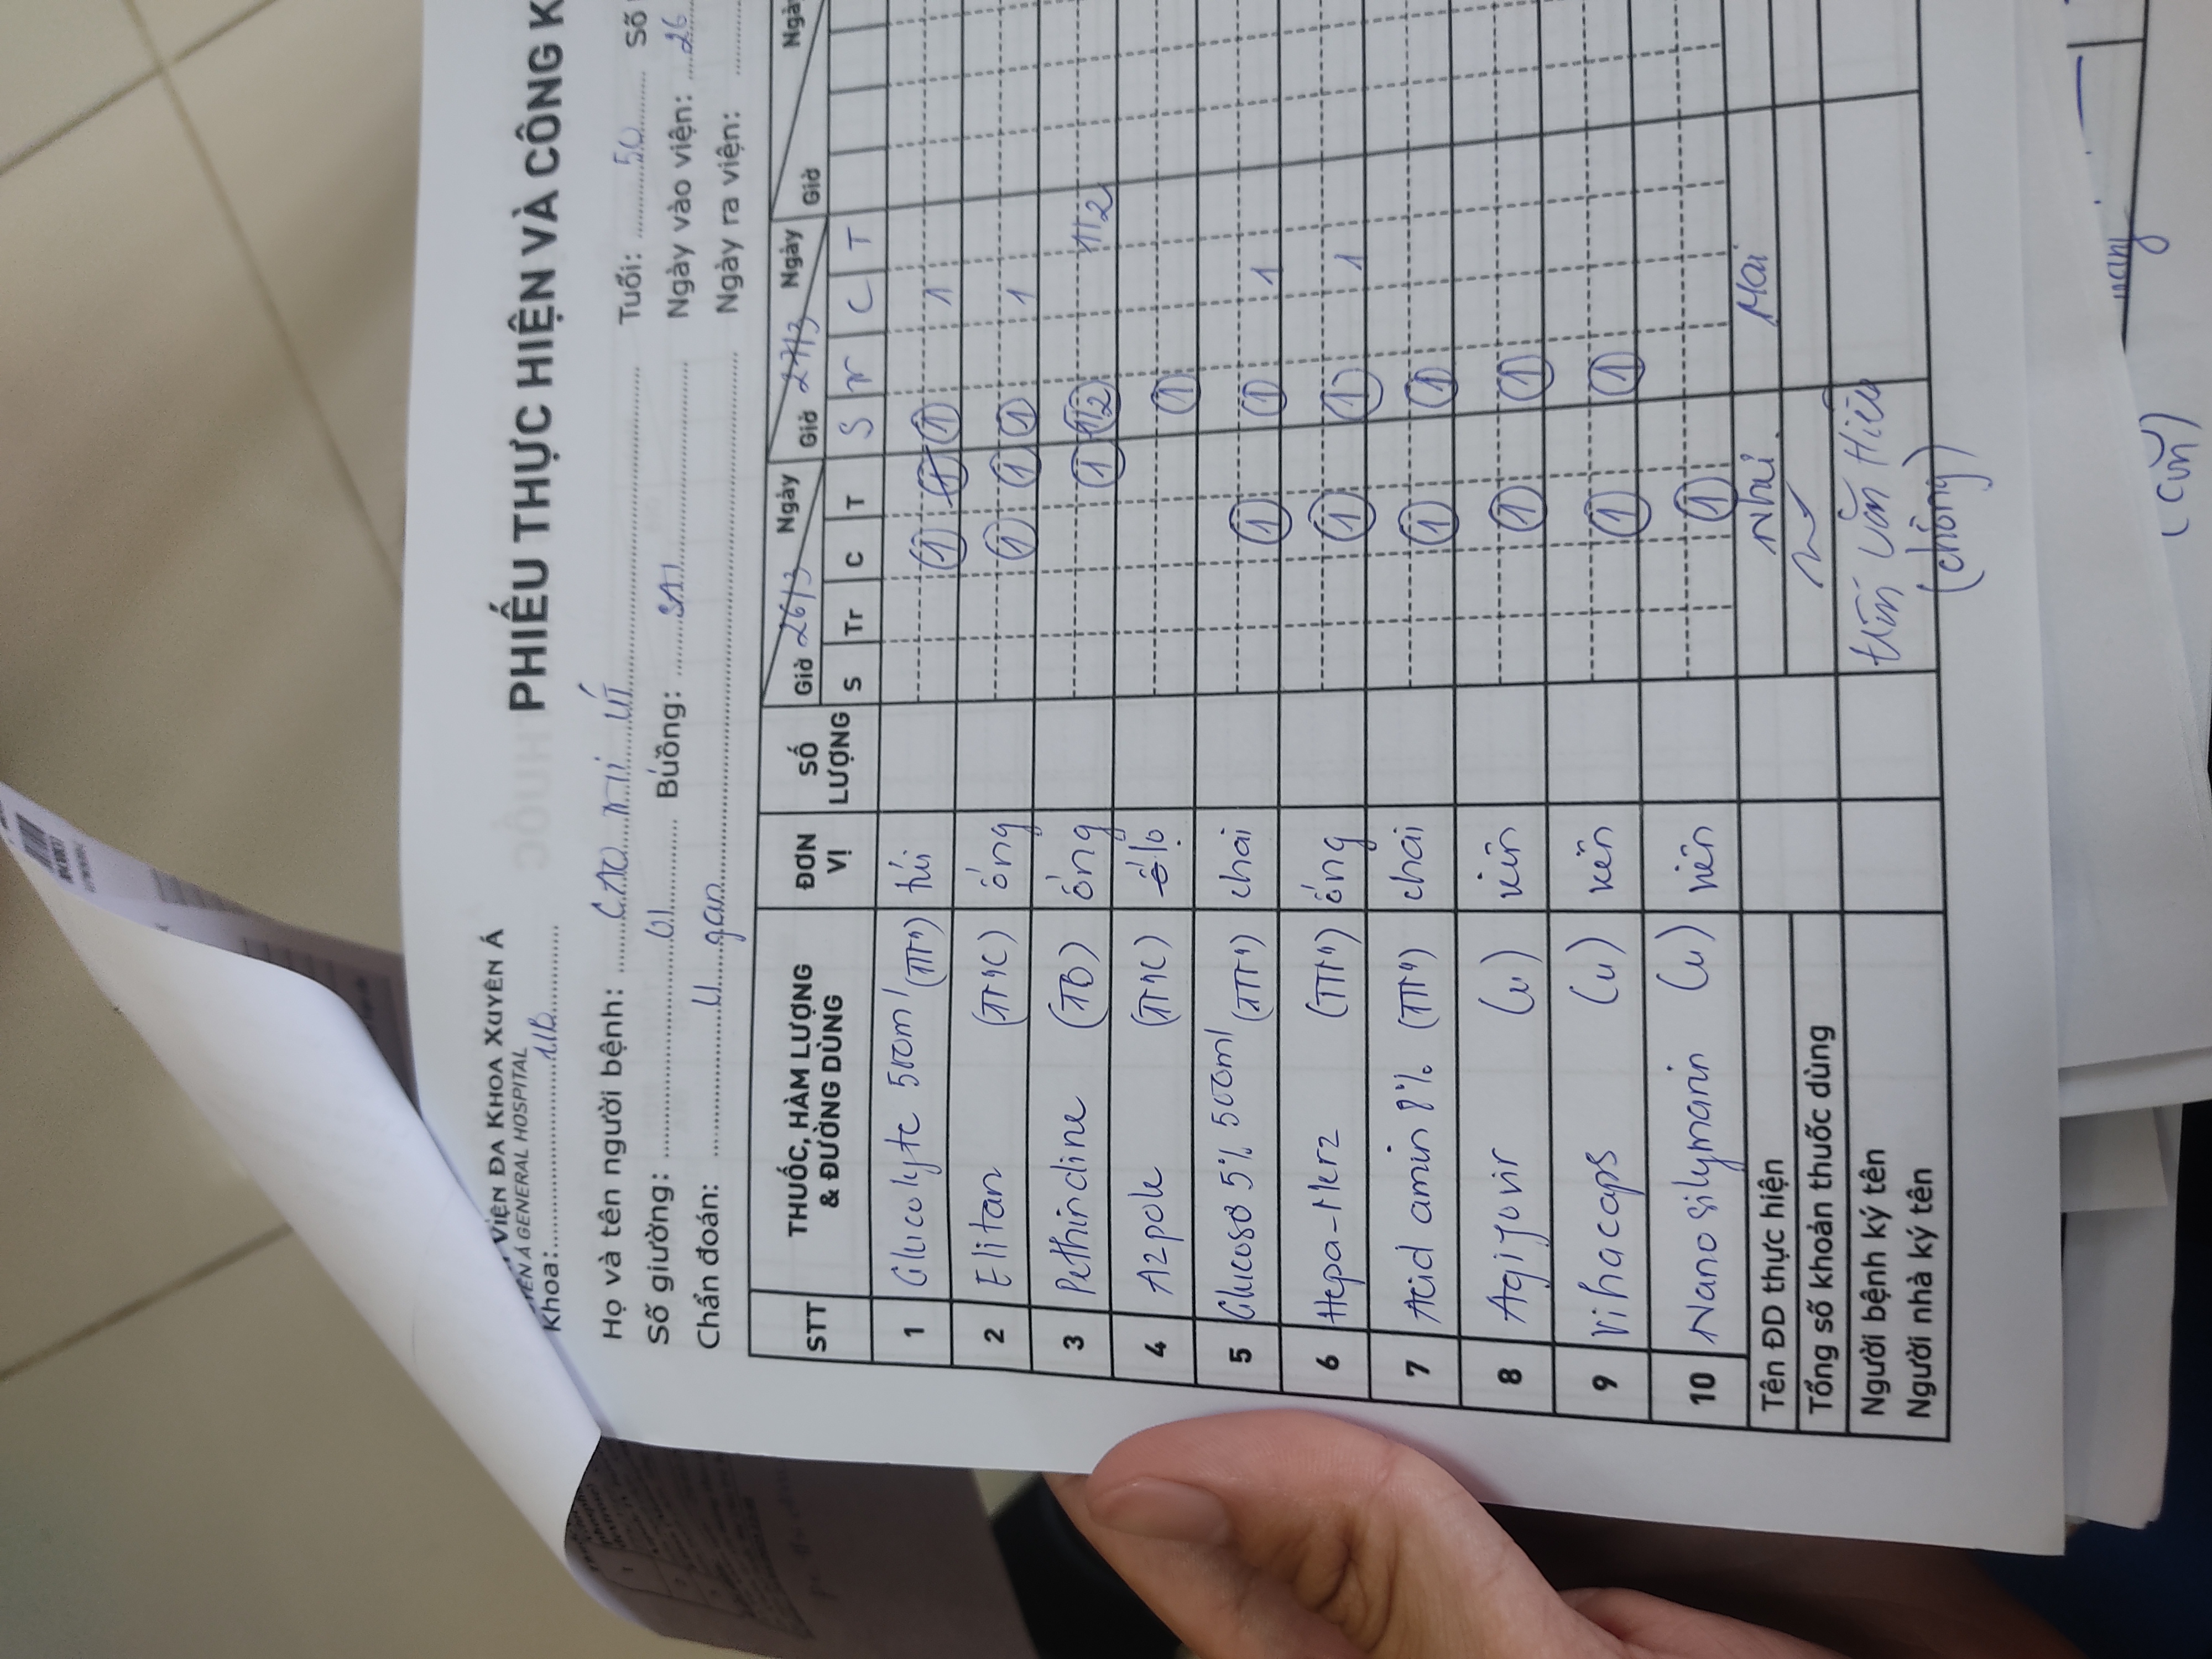 VIỆN ĐA KHOA XUYÊN Á
YÊN Á GENERAL HOSPITAL
Khoa: UB
PHIẾU THỰC HIỆN VÀ CÔNG K
Họ và tên người bệnh: CAO THỊ ÚT Tuổi: 50 Số
Số giường: 01 Buồng: Ngày vào viện: 26
Chẩn đoán: U gan Ngày ra viện:
STT THUỐC, HÀM LƯỢNG & ĐƯỜNG DÙNG ĐƠN VỊ SỐ LƯỢNG Giờ 26/3 Ngày Giờ 27/3 Ngày Giờ Ngà
S Tr C T S Tr C T
1 Glucolyte 500ml (TTM) túi 1 1 1 1
2 Elitan (TMC) ống 1 1 1 1
3 Pethindine (TB) ống 1 1/2 1/2
4 Azpole (TMC) lọ 1
5 Glucose 5% 500ml (TTM) chai 1 1 1
6 Hepa-Merz (TTM) ống 1 1 1
7 Acid amin 8% (TTM) chai 1 1
8 Agifovir (u) viên 1 1
9 Vihacaps (u) viên 1 1
10 Nanosilymarin (u) viên 1
Tên ĐD thực hiện Như Mai
Tổng số khoản thuốc dùng
Người bệnh ký tên Văn Hiếu
Người nhà ký tên
(chồng)
(con)